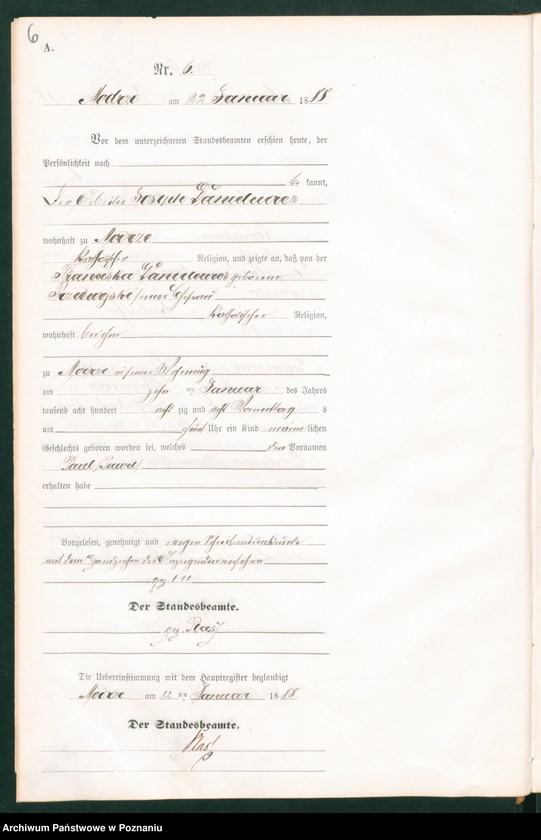 6
A.
Nr. 6.
Modrze am 22 Januar 1888
Vor dem unterzeichneten Standesbeamten erschien heute, der
Persönlichkeit nach
be kannt,
Der Arbeiter Joseph
wohnhaft zu Modrze
katholischer Religion, und zeigte an, daß von der
Franciska geborene
seiner Ehefrau
katholischer Religion,
wohnhaft bei ihm
zu Modrze in seiner Wohnung
am zehn ten Januar des Jahres
tausend acht hundert acht zig und acht Vormittag s
um fünf Uhr ein Kind männ lichen
Geschlechts geboren worden sei, welches den Vornamen
Paul
erhalten habe
Vorgelesen, genehmigt und wegen Schreibensunkunde
mit dem Handzeichen des Anzeigenden versehen
gez.
Der Standesbeamte.
gez.
Die Uebereinstimmung mit dem Hauptregister beglaubigt
Modrze am 22 ten Januar 1888
Der Standesbeamte.
Archiwum Państwowe w Poznaniu